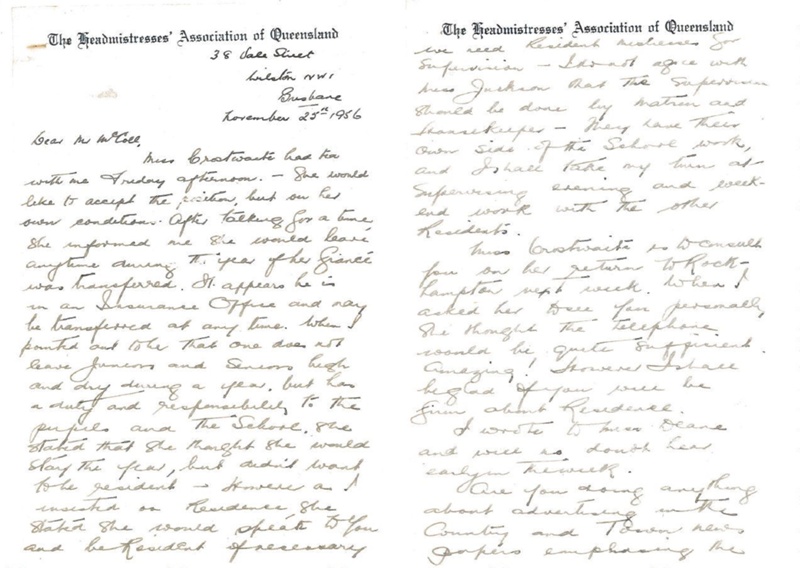 The Headmistresses' Association of Queensland
38 Vale Street
Wilston NW1
Brisbane
November 25th 1956
Dear Mr McColl,
Miss Crostwaite had tea
with me Friday afternoon. – She would
like to accept the position, but on her
own conditions. After talking for a time,
she informed me she would leave
anytime during the year if her fiancé
was transferred. It appears he is
in an Insurance Office and may
be transferred at any time. When I
pointed out to her that one does not
leave Juniors and Seniors high
and dry during a year, but has
a duty and responsibility to the
pupils and the School, she
stated that she thought she would
stay the year, but didn't want
to be resident – However as I
insisted on Residence she
stated she would speak to you
and be Resident if necessary
The Headmistresses' Association of Queensland
we need Resident mistresses for
Supervision – I do not agree with
Miss Jackson that the Supervision
should be done by matron and
Housekeeper – They have their
own side of the School work,
and I shall take my turn at
Supervising evening and week-
end work with the other
Residents.
Miss Crostwaite is to consult
you on her return to Rock-
hampton next week. When I
asked her to see you personally,
she thought the telephone
would be quite sufficient.
Amazing! However I shall
be glad if you will be
firm about Residence.
I wrote to Miss Deane
and will no doubt hear
early in the week.
Are you doing anything
about advertising in the
Country and Town news
papers emphasing the